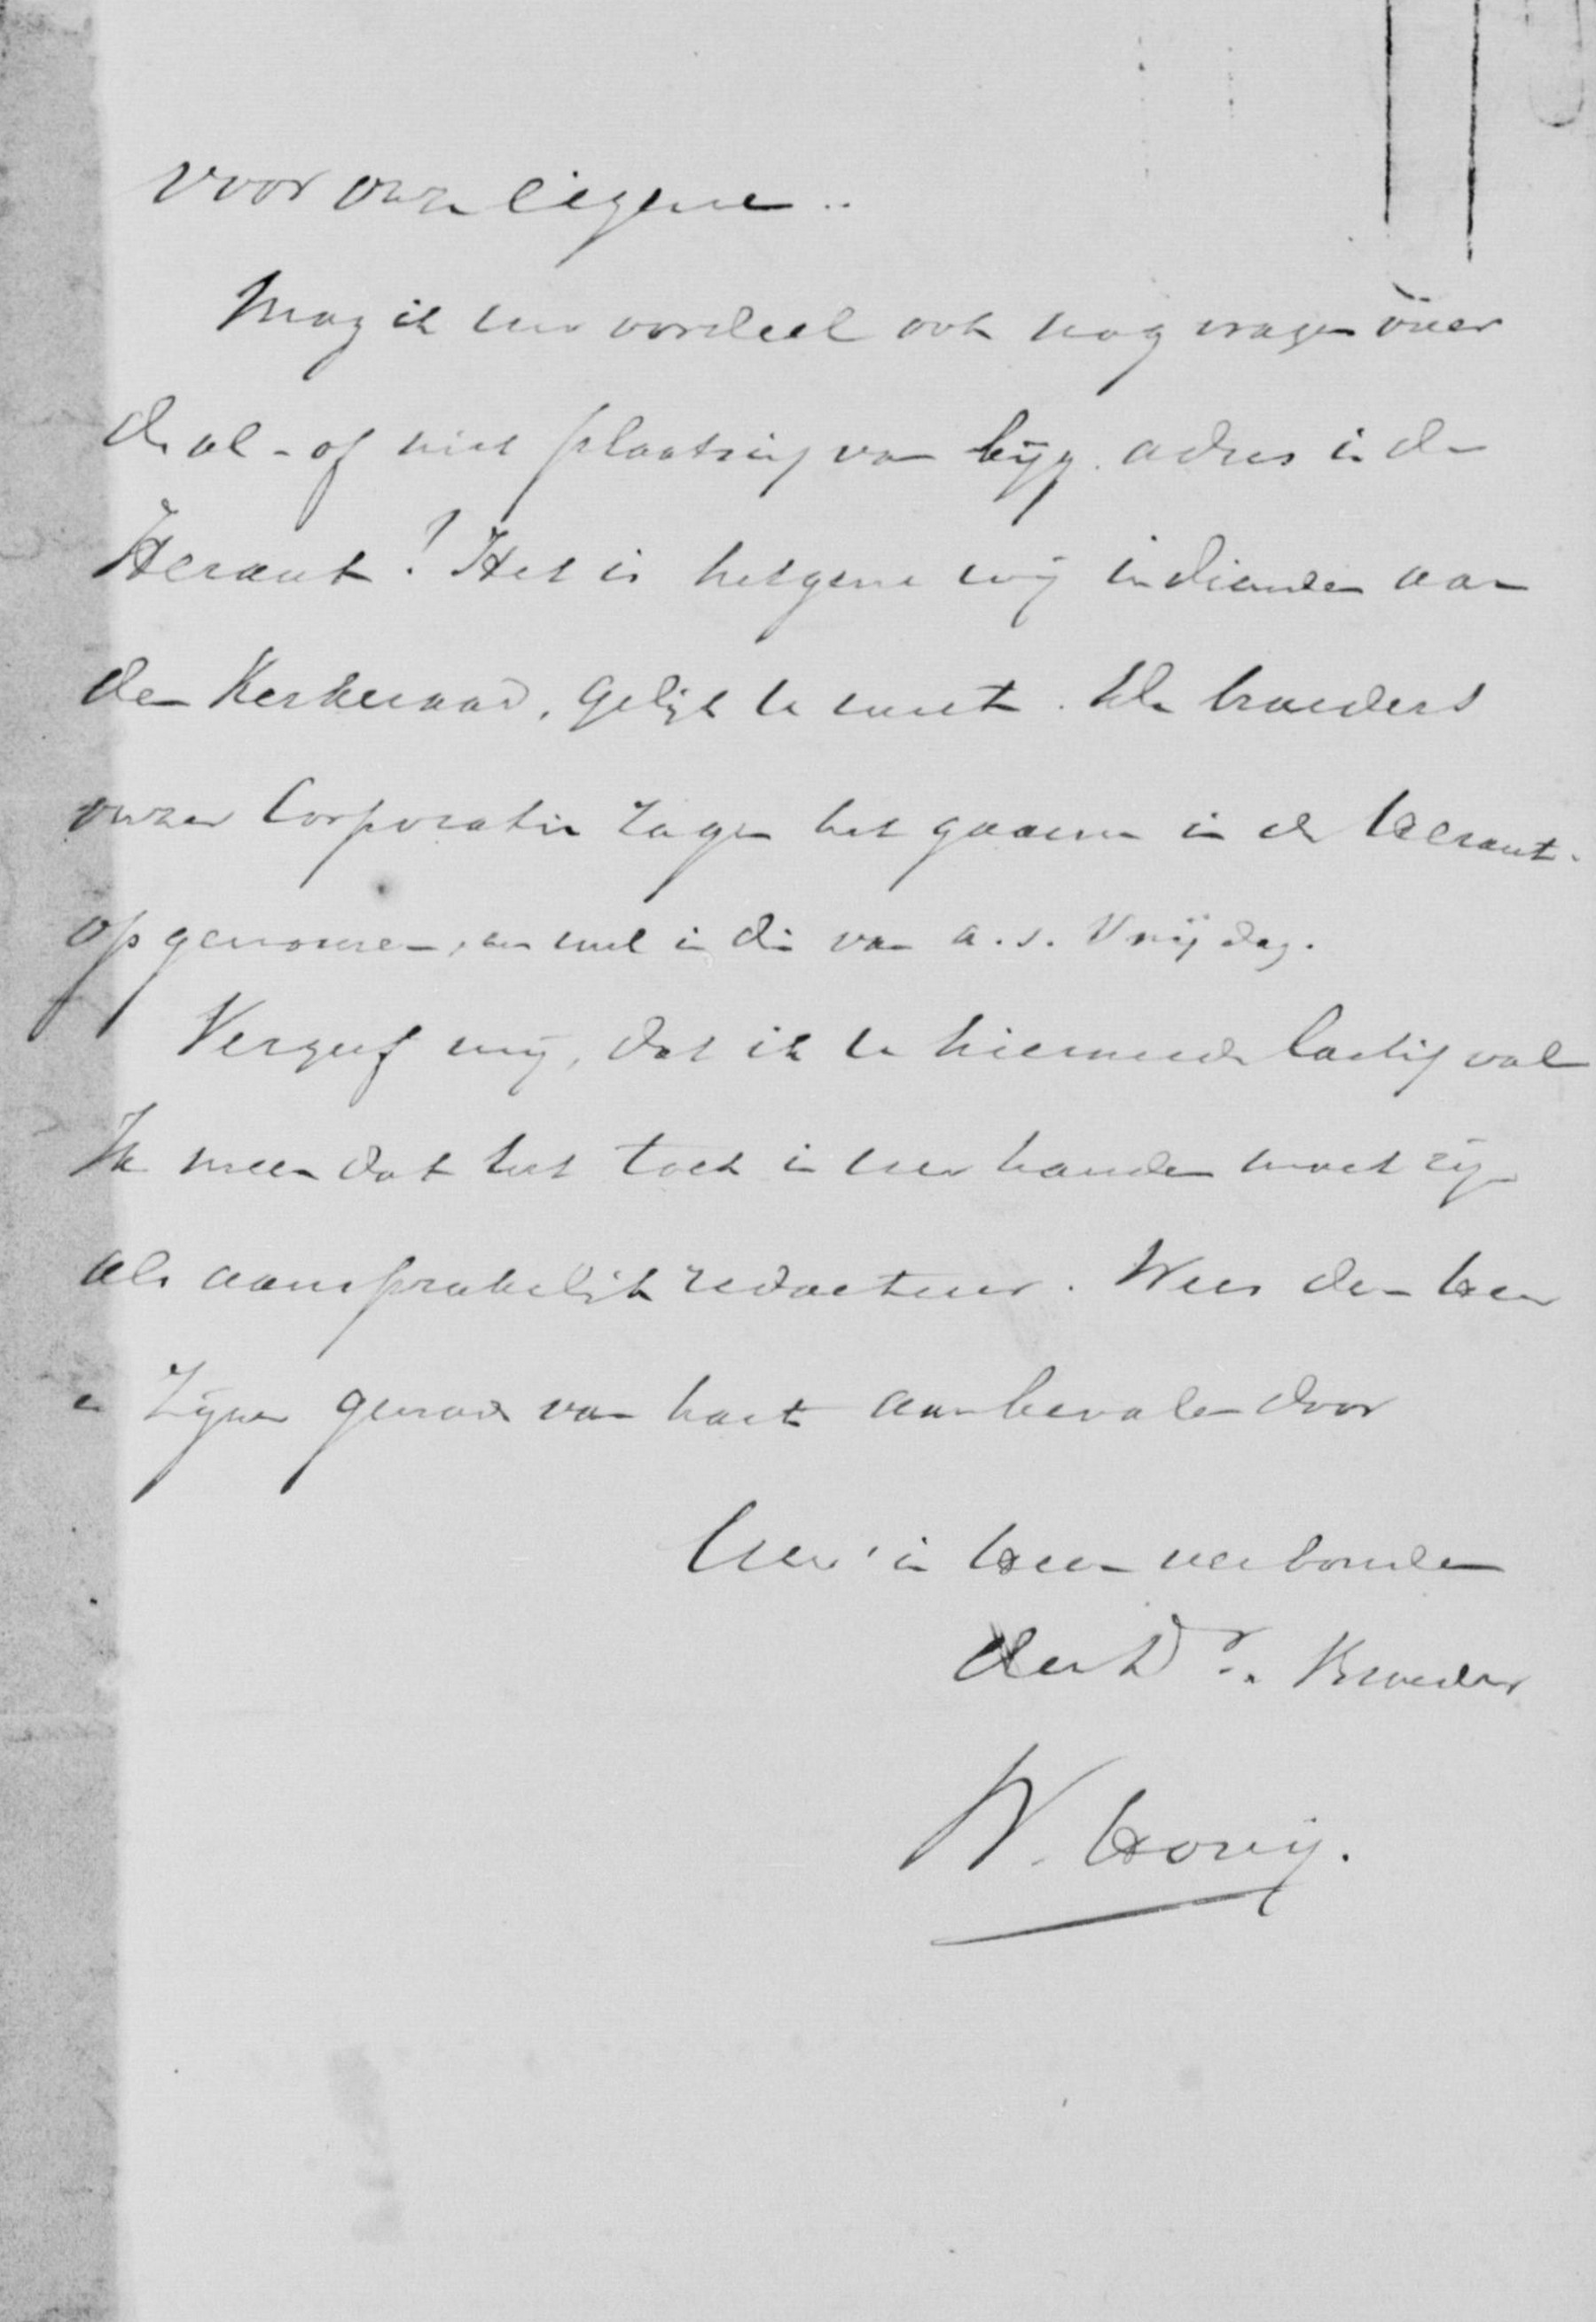 voor onze eigene..
Mag ik uw oordeel ook nog vragen over
de al- of niet plaatsing van bijg. adres in de
Heraut? Het is hetgene wij indienden aan
den Kerkeraad, gelijk U weet. De broeders
onzer Corporatie zagen het gaarne in de Heraut
opgenomen, en wel in die van a.s. Vrijdag.
Vergeef mij, dat ik U hiermede lastig val
Ik meen dat het toch in uwe handen moet zijn
als aansprakelijk redacteur. Wees den Heer
en Zijner genade van harte aanbevolen door
Uw in Heer verbonden
Broeder
W. Hovij.